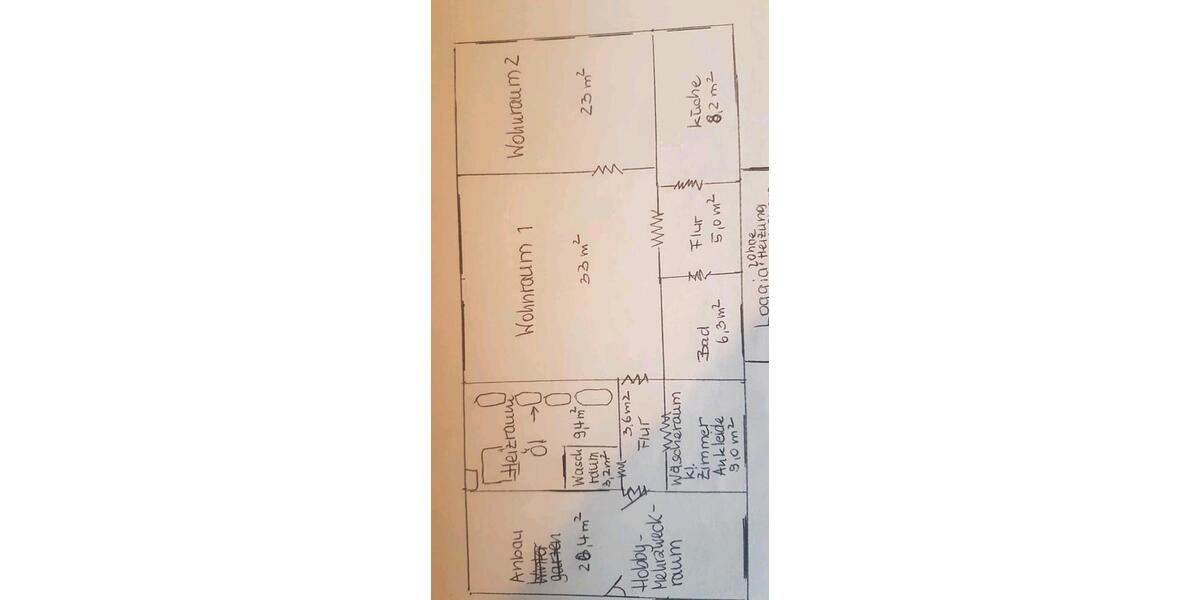 Wohnraum 2
23 m²
Küche
8,2 m²
Wohnraum 1
33 m²
Flur
5,0 m²
Bad
6,3 m²
Loggia
ohne
Heizung
Heizraum
Öl →
9,4 m²
Wasch
raum
3,2 m²
3,6 m2
Flur
Wäscheraum
kl.
Zimmer
Ankleide
9,0 m²
Anbau
Winter
garten
m²
Hobby-
Mehrzweck-
raum